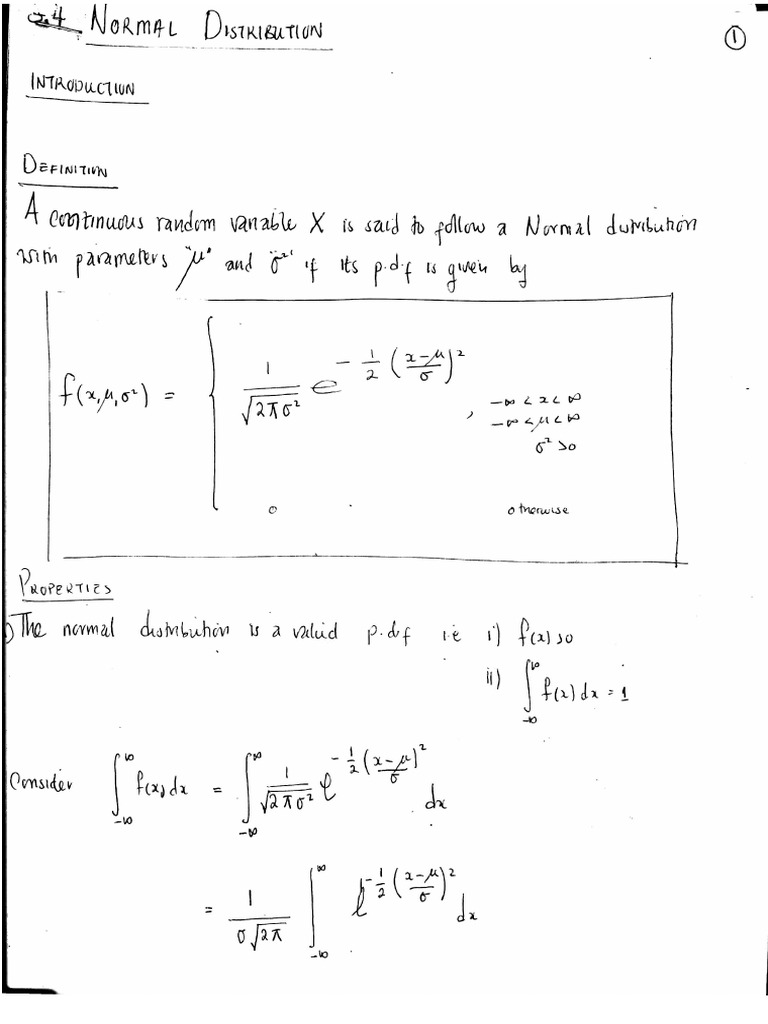 2.4 NORMAL DISTRIBUTION
①
INTRODUCTION
DEFINITION
A continuous random variable X is said to follow a Normal distribution
with parameters "μ" and "σ²" if its p.d.f is given by
f(x, μ, σ²) = { 1/√(2πσ²) e^(-1/2 ((x-μ)/σ)²) , -∞ < x < ∞
-∞ < μ < ∞
σ² > 0
0 otherwise
PROPERTIES
) The normal distribution is a valid p.d.f i.e i) f(x) > 0
ii) ∫_{-∞}^{∞} f(x) dx = 1
Consider ∫_{-∞}^{∞} f(x) dx = ∫_{-∞}^{∞} 1/√(2πσ²) e^(-1/2 ((x-μ)/σ)²) dx
= 1/(σ√(2π)) ∫_{-∞}^{∞} e^(-1/2 ((x-μ)/σ)²) dx